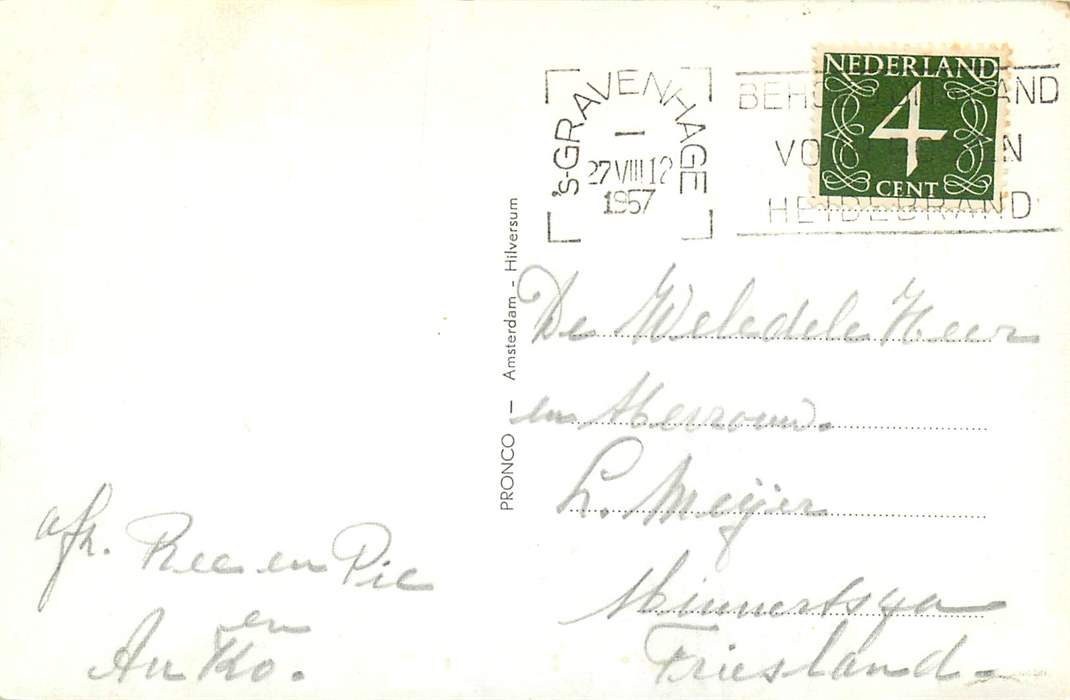 's-GRAVENHAGE
27 VIII 12
1957
NEDERLAND
4
CENT
HEIDEBRAND
PRONCO — Amsterdam - Hilversum
De Weledele Heer
en Mevrouw.
L. Meijer
Minnertsga
Friesland.
afz. Ree en Pie
en
An Ko.